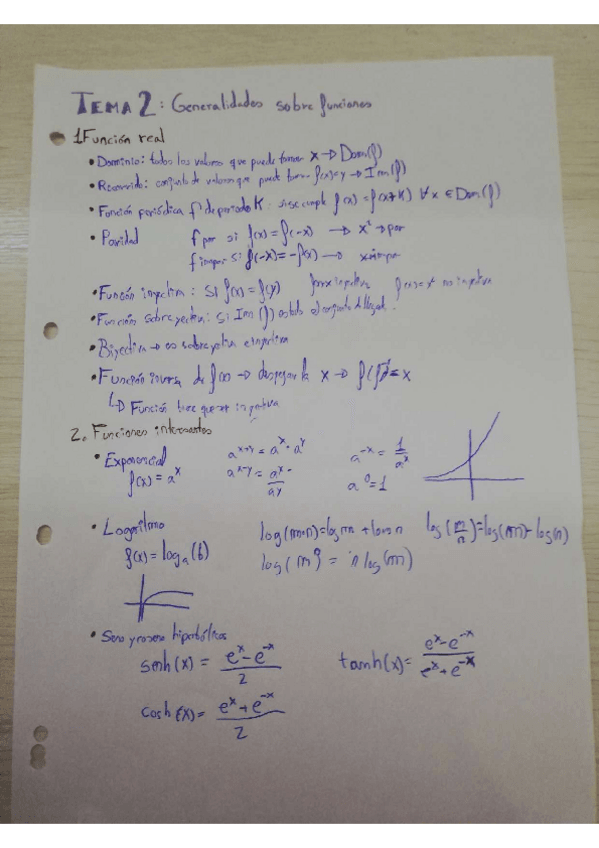 TEMA 2: Generalidades sobre funciones
1. Función real
• Dominio: todos los valores que puede tomar x → Dom(f)
• Recorrido: conjunto de valores que puede tomar f(x)=y → Im(f)
• Función periódica f de periodo K: si se cumple f(x) = f(x+K) ∀x ∈ Dom(f)
• Paridad f par si f(x) = f(-x) → x² → par
f impar si f(-x) = -f(x) → x impar
• Función inyectiva: si f(x) = f(y) inyectiva f(x)=x² no inyectiva
• Función sobreyectiva: si Im(f) es todo el conjunto de llegada.
• Biyectiva → es sobreyectiva e inyectiva
• Función inversa de f(x) → despejar la x →
↳ Función tiene que ser inyectiva
2. Funciones interesantes
• Exponencial a^(x+y) = a^x · a^y a^(-x) = 1/a^x
f(x) = a^x a^(x-y) = a^x/a^y a^0 = 1
• Logaritmo log(m·n) = log m + log n log(m/n) = log(m) - log(n)
f(x) = log_a(b) log(m^n) = n log(m)
• Seno y coseno hiperbólicos
senh(x) = (e^x - e^-x)/2 tanh(x) = (e^x - e^-x)/(e^x + e^-x)
cosh(x) = (e^x + e^-x)/2